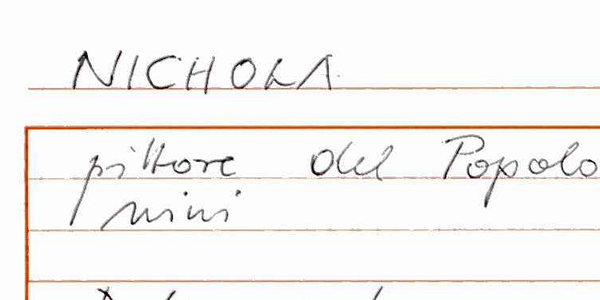 NICHOLA
pittore del Popolo
mini